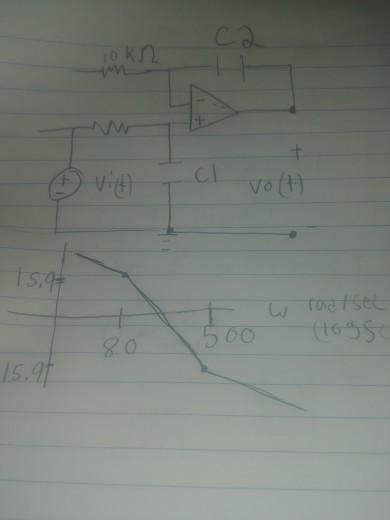 C2
10 KΩ
-
+
+
-
Vi(t)
C1
+
Vo(t)
-
15.9
ω rad/sec
80
500
15.9